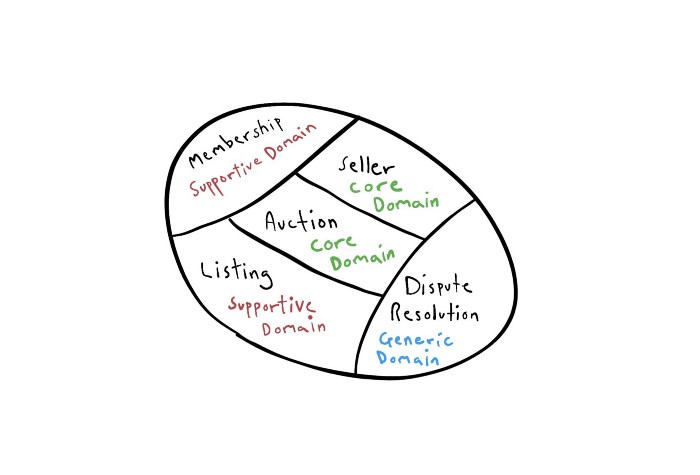 Membership
Supportive Domain
Seller
Core
Domain
Auction
Core
Domain
Listing
Supportive
Domain
Dispute
Resolution
Generic
Domain